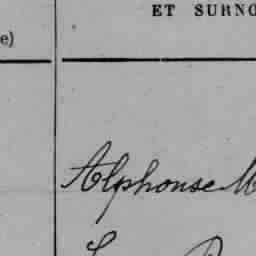 ET SURNO
e)
Alphonse M